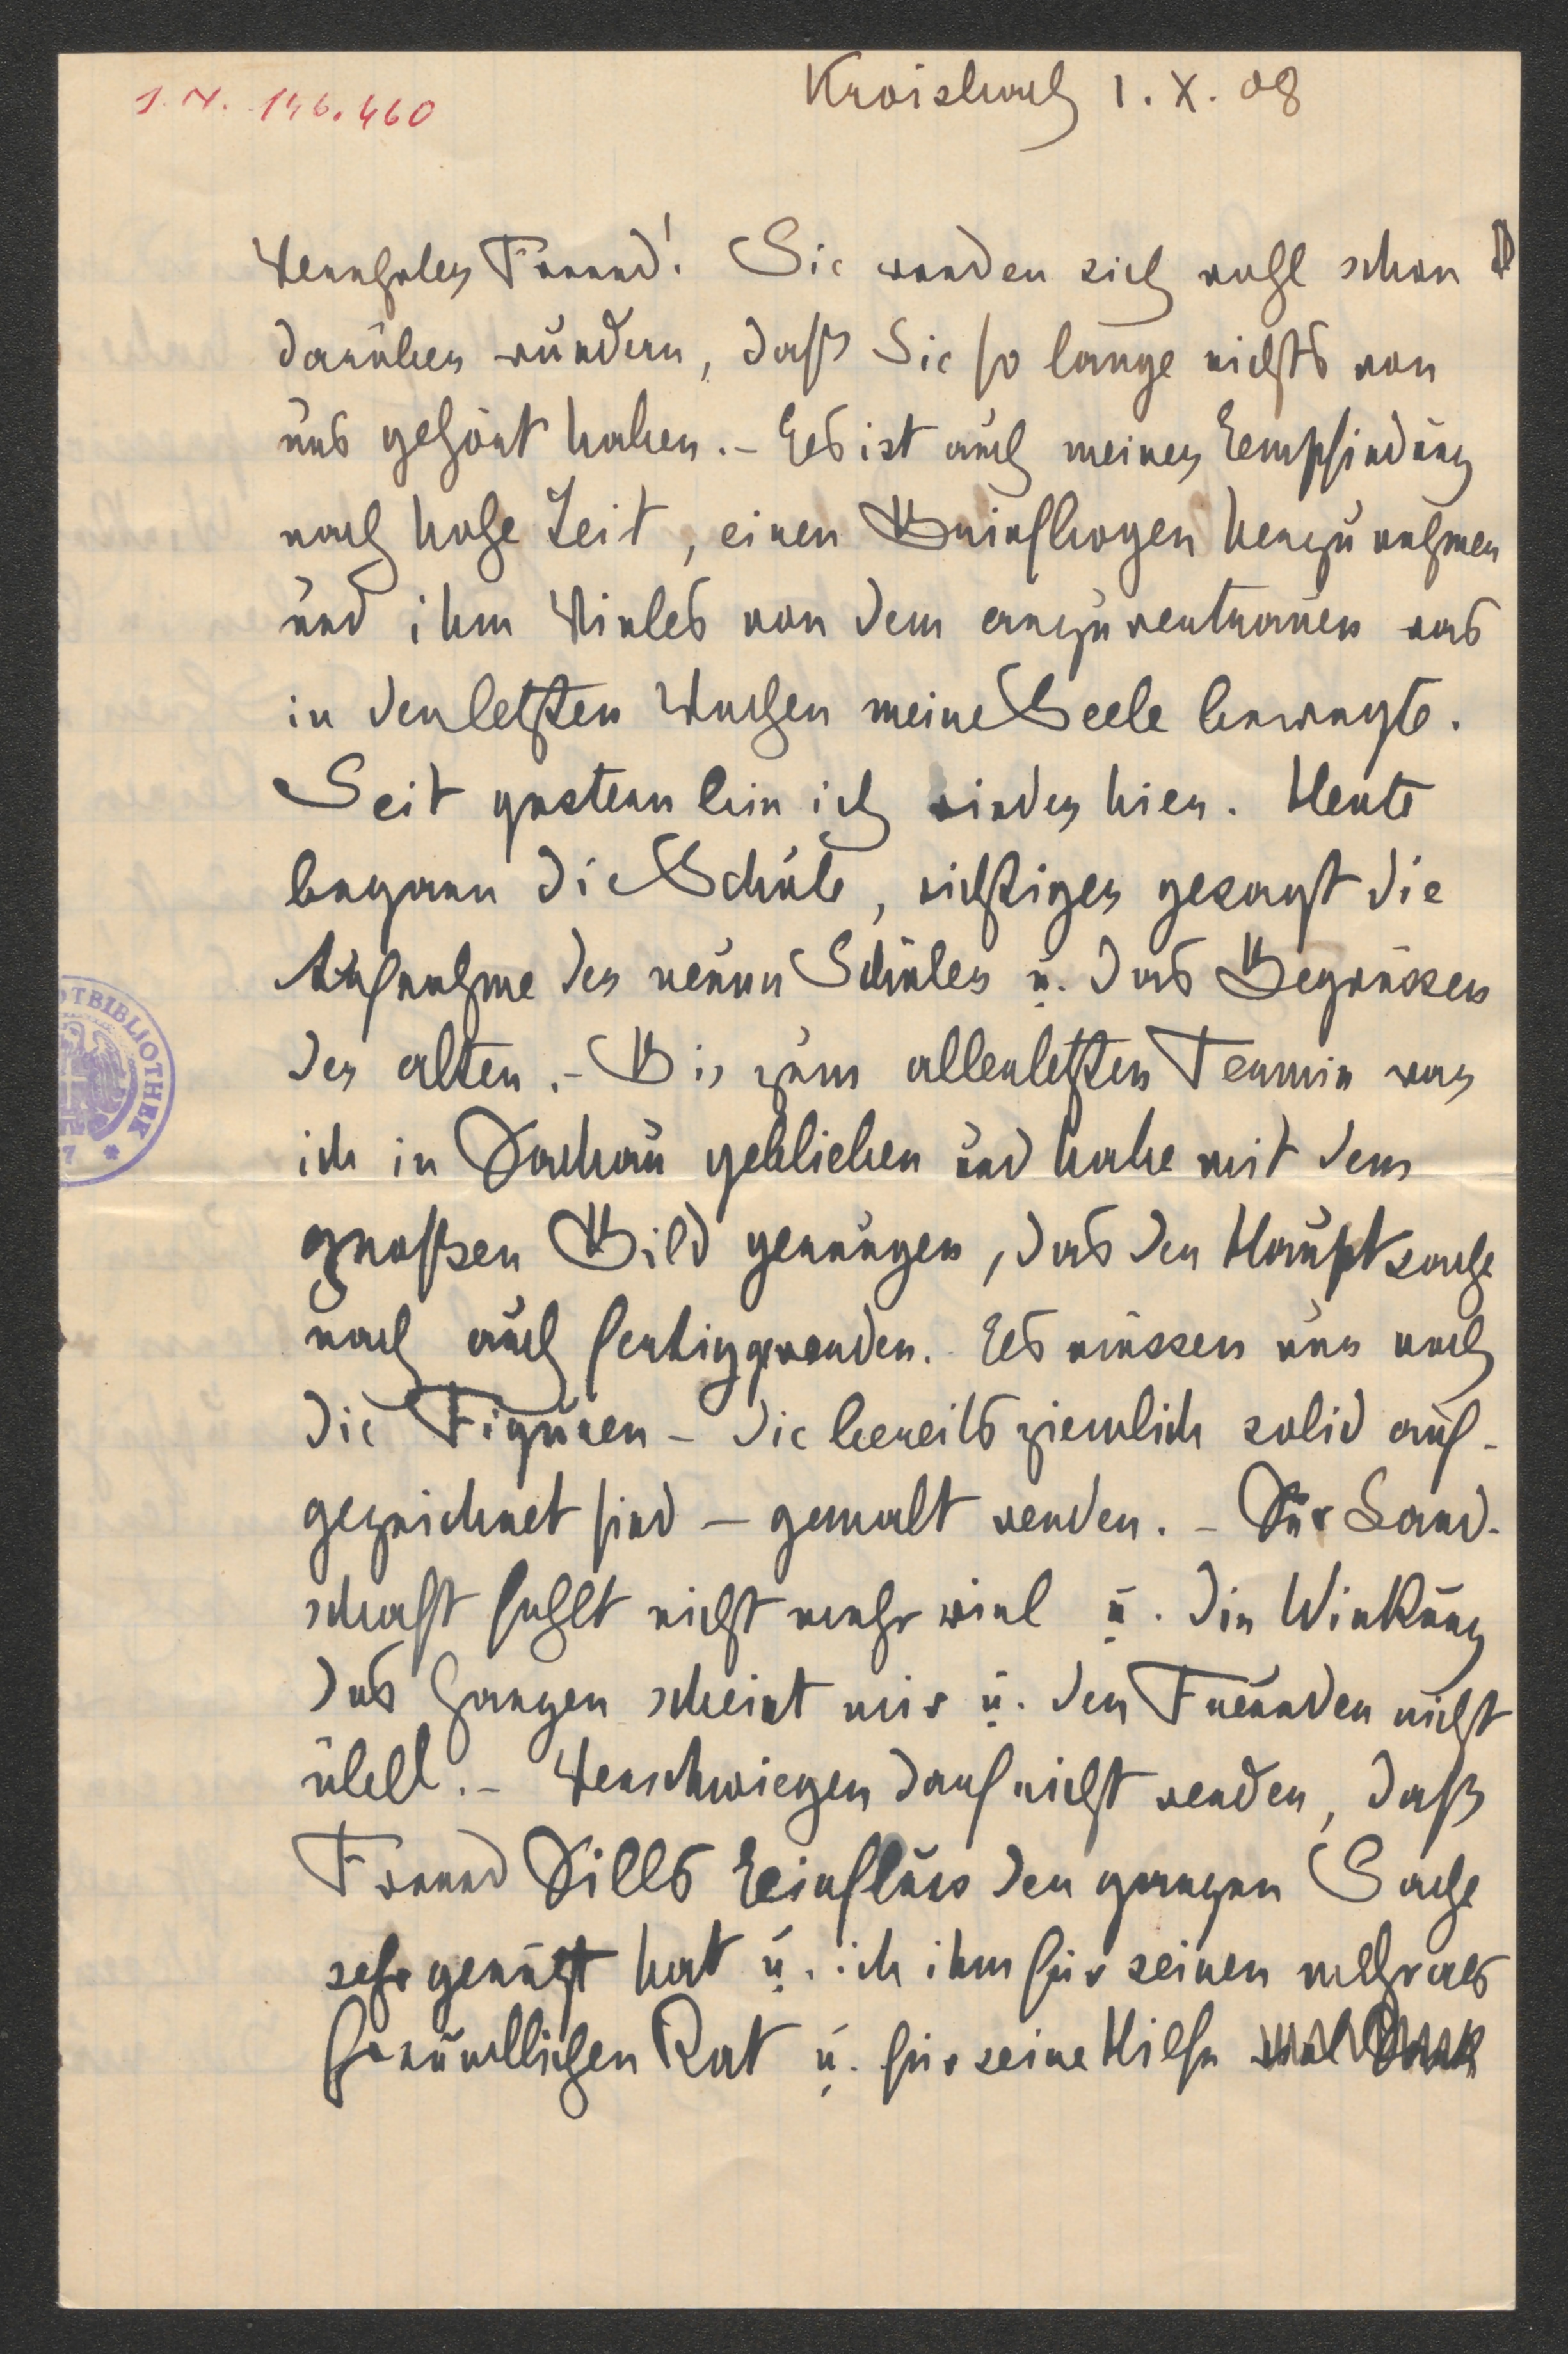 I. N. 146.460
Kroisbach 1. X. 08
Verehrter Freund! Sie werden sich wohl schon
darüber wundern, daß Sie so lange nichts von
uns gehört haben. – Es ist auch meiner Empfindung
nach hohe Zeit, einen Briefbogen herzunehmen
und ihm Vieles von dem anzuvertrauen was
in den letzten Wochen meine Seele bewegte.
Seit gestern bin ich wieder hier. Heute
begann die Schule, richtiger gesagt die
Aufnahme der neuen Schüler u. das Begrüssen
der alten. – Bis zum allerletzten Termin war
ich in Dachau geblieben und habe mit dem
großen Bild gerungen, das der Hauptsache
nach auch fertiggeworden. Es müssen nur noch
die Figuren – die bereits ziemlich solid auf-
gezeichnet sind – gemalt werden. – Der Land-
schaft fehlt nicht mehr viel u. die Wirkung
des Ganzen scheint mir u. den Freunden nicht
übel. – Verschwiegen darf nicht werden, daß
Freund Dills Einfluss der ganzen Sache
sehr genützt hat u. ich ihm für seinen mehr als
freundlichen Rat u. für seine Hilfe
OTBIBLIOTHEK